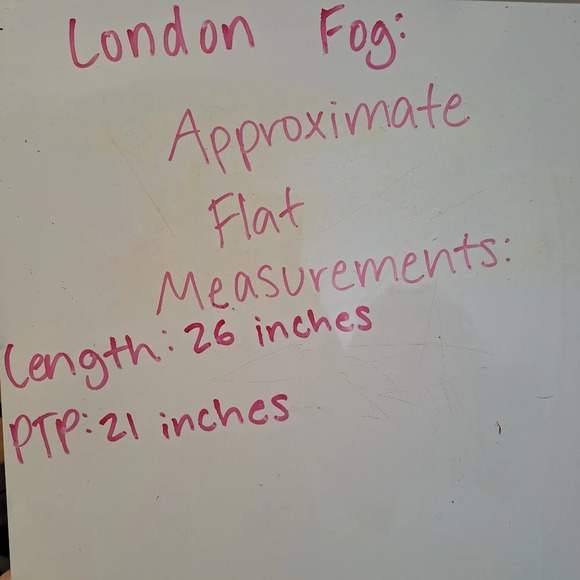 London Fog:
Approximate
Flat
Measurements:
Length: 26 inches
PTP: 21 inches